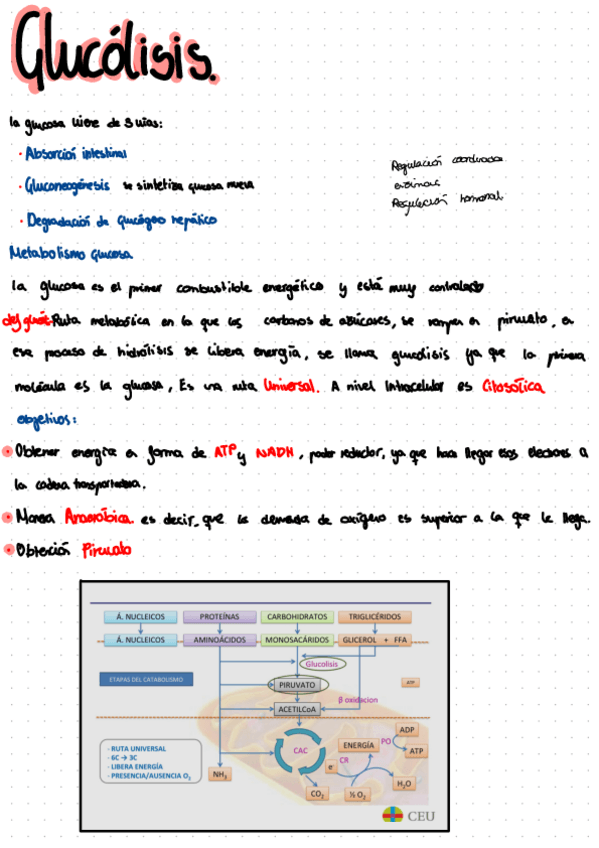 Glucólisis.
la glucosa viene de 3 vias:
· Absorción intestinal
· Gluconeogénesis se sintetiza glucosa nueva
· Degradación de glucógeno hepático
Regulación coordinada
enzimas
Regulación hormonal
Metabolismo glucosa
la glucosa es el primer combustible energético y está muy controlado
Ruta metabólica en la que los carbonos de azúcares, se rompen en piruvato, en
ese proceso de hidrólisis se libera energía, se llama glucolisis ya que la primera
molécula es la glucosa, Es una ruta Universal. A nivel Intracelular es Citosólica
objetivos:
• Obtener energía en forma de ATP y NADH, poder reductor, ya que hace llegar esos electrones a
la cadena transportadora.
• Manera Anaeróbica. es decir, que la demanda de oxígeno es superior a la que le llega.
• Obtención Piruvato
Á. NUCLEICOS PROTEÍNAS CARBOHIDRATOS TRIGLICÉRIDOS
Á. NUCLEICOS AMINOÁCIDOS MONOSACÁRIDOS GLICEROL + FFA
Glucolisis
ETAPAS DEL CATABOLISMO
PIRUVATO
ATP
β oxidacion
ACETILCoA
· RUTA UNIVERSAL
· 6C → 3C
· LIBERA ENERGÍA
· PRESENCIA/AUSENCIA O2
NH3
CAC
ENERGÍA
PO
ADP
ATP
CR
e-
H2O
CO2
½ O2
CEU